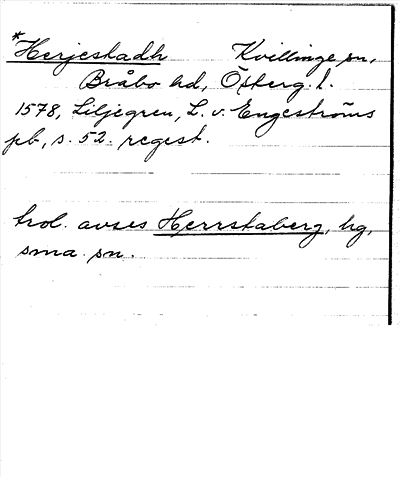 *Herjestadh Kvillinge sn,
Bråbo hd, Österg. l.
1578, Liljegren, L. v. Engeströms
pb, s. 52. regest.
trol. avses Herrstaberg, hg,
sma sn.